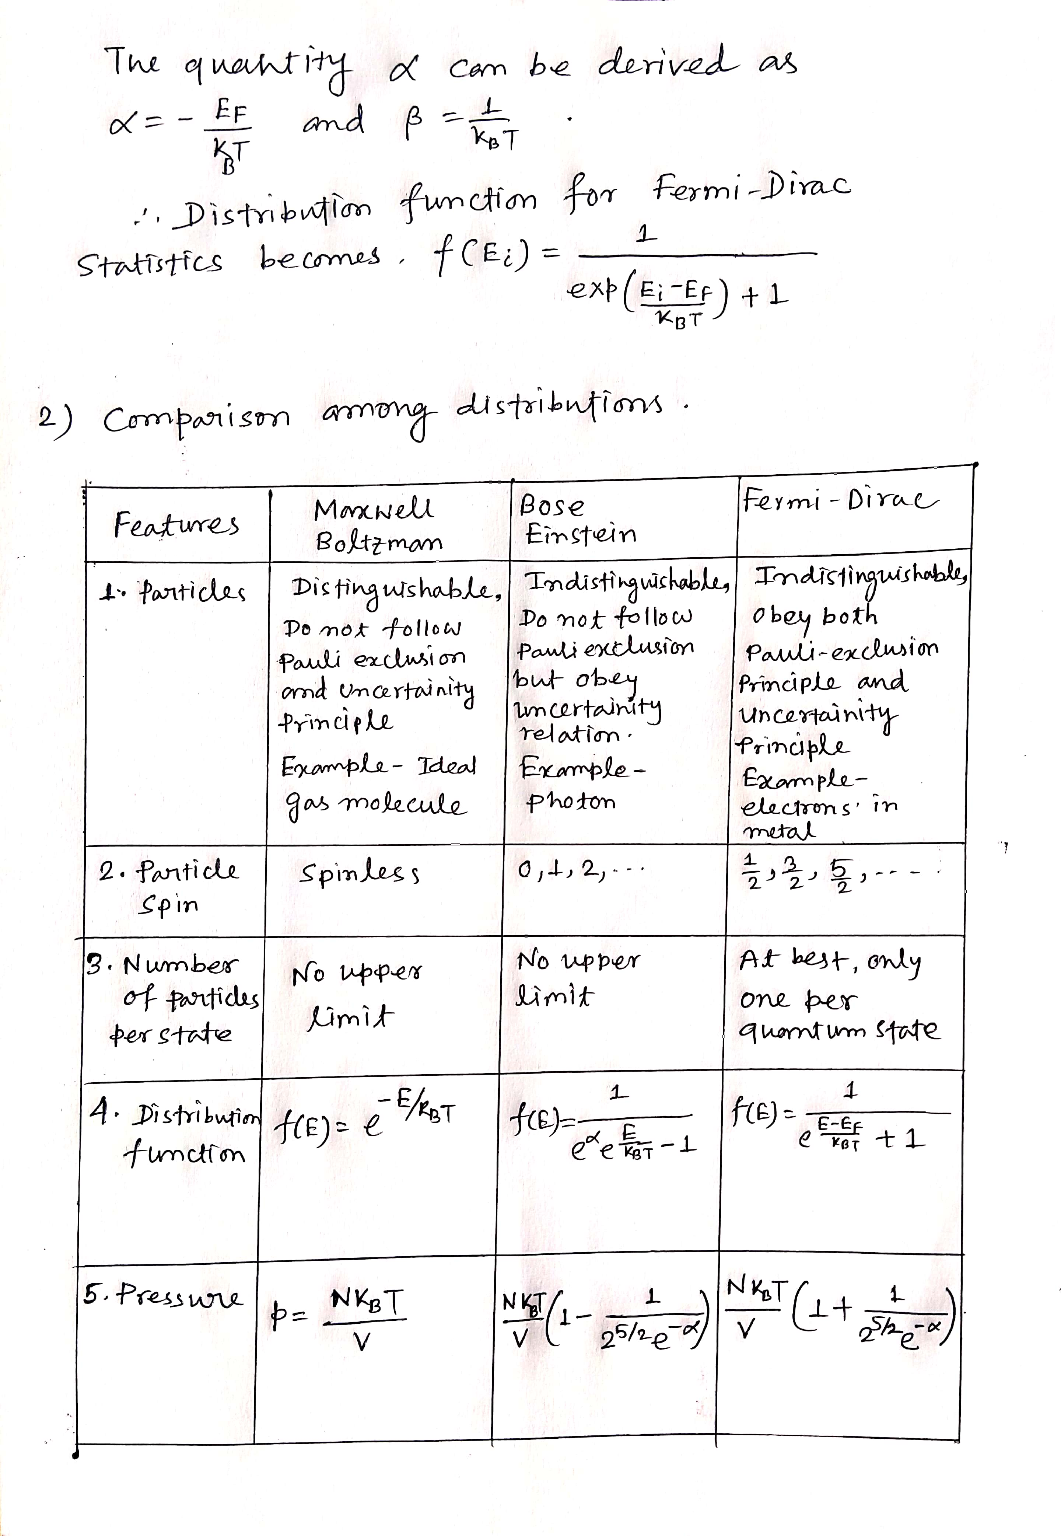 The quantity α can be derived as
α = - EF/KBT and β = 1/KBT .
∴ Distribution function for Fermi-Dirac
Statistics becomes, f(Ei) = 1/(exp((Ei-EF)/KBT) + 1)
2) Comparison among distributions.
Features
Maxwell
Boltzman
Bose
Einstein
Fermi-Dirac
1. Particles
Distinguishable,
Do not follow
Pauli exclusion
and Uncertainity
Principle
Example- Ideal
gas molecule
Indistinguishable,
Do not follow
Pauli exclusion
but obey
uncertainity
relation.
Example-
photon
Indistinguishable,
Obey both
Pauli-exclusion
Principle and
Uncertainity
Principle
Example-
electrons in
metal
2. Particle
Spin
Spinless
0,1,2,...
1/2, 3/2, 5/2, ----
3. Number
of particles
per state
No upper
limit
No upper
limit
At best, only
one per
quantum state
4. Distribution
function
f(E) = e^(-E/KBT)
f(E) = 1/(e^α e^(E/KBT) - 1)
f(E) = 1/(e^((E-EF)/KBT) + 1)
5. Pressure
p = NKBT/V
NKBT/V (1 - 1/(2^(5/2) e^(-α)))
NKBT/V (1 + 1/(2^(5/2) e^(-α)))